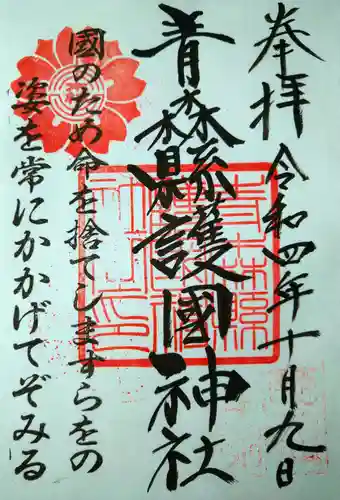 奉拝
令和四年十月九日
青森縣護國神社
國のため命を捨てしますらをの
姿を常にかかげてぞみる